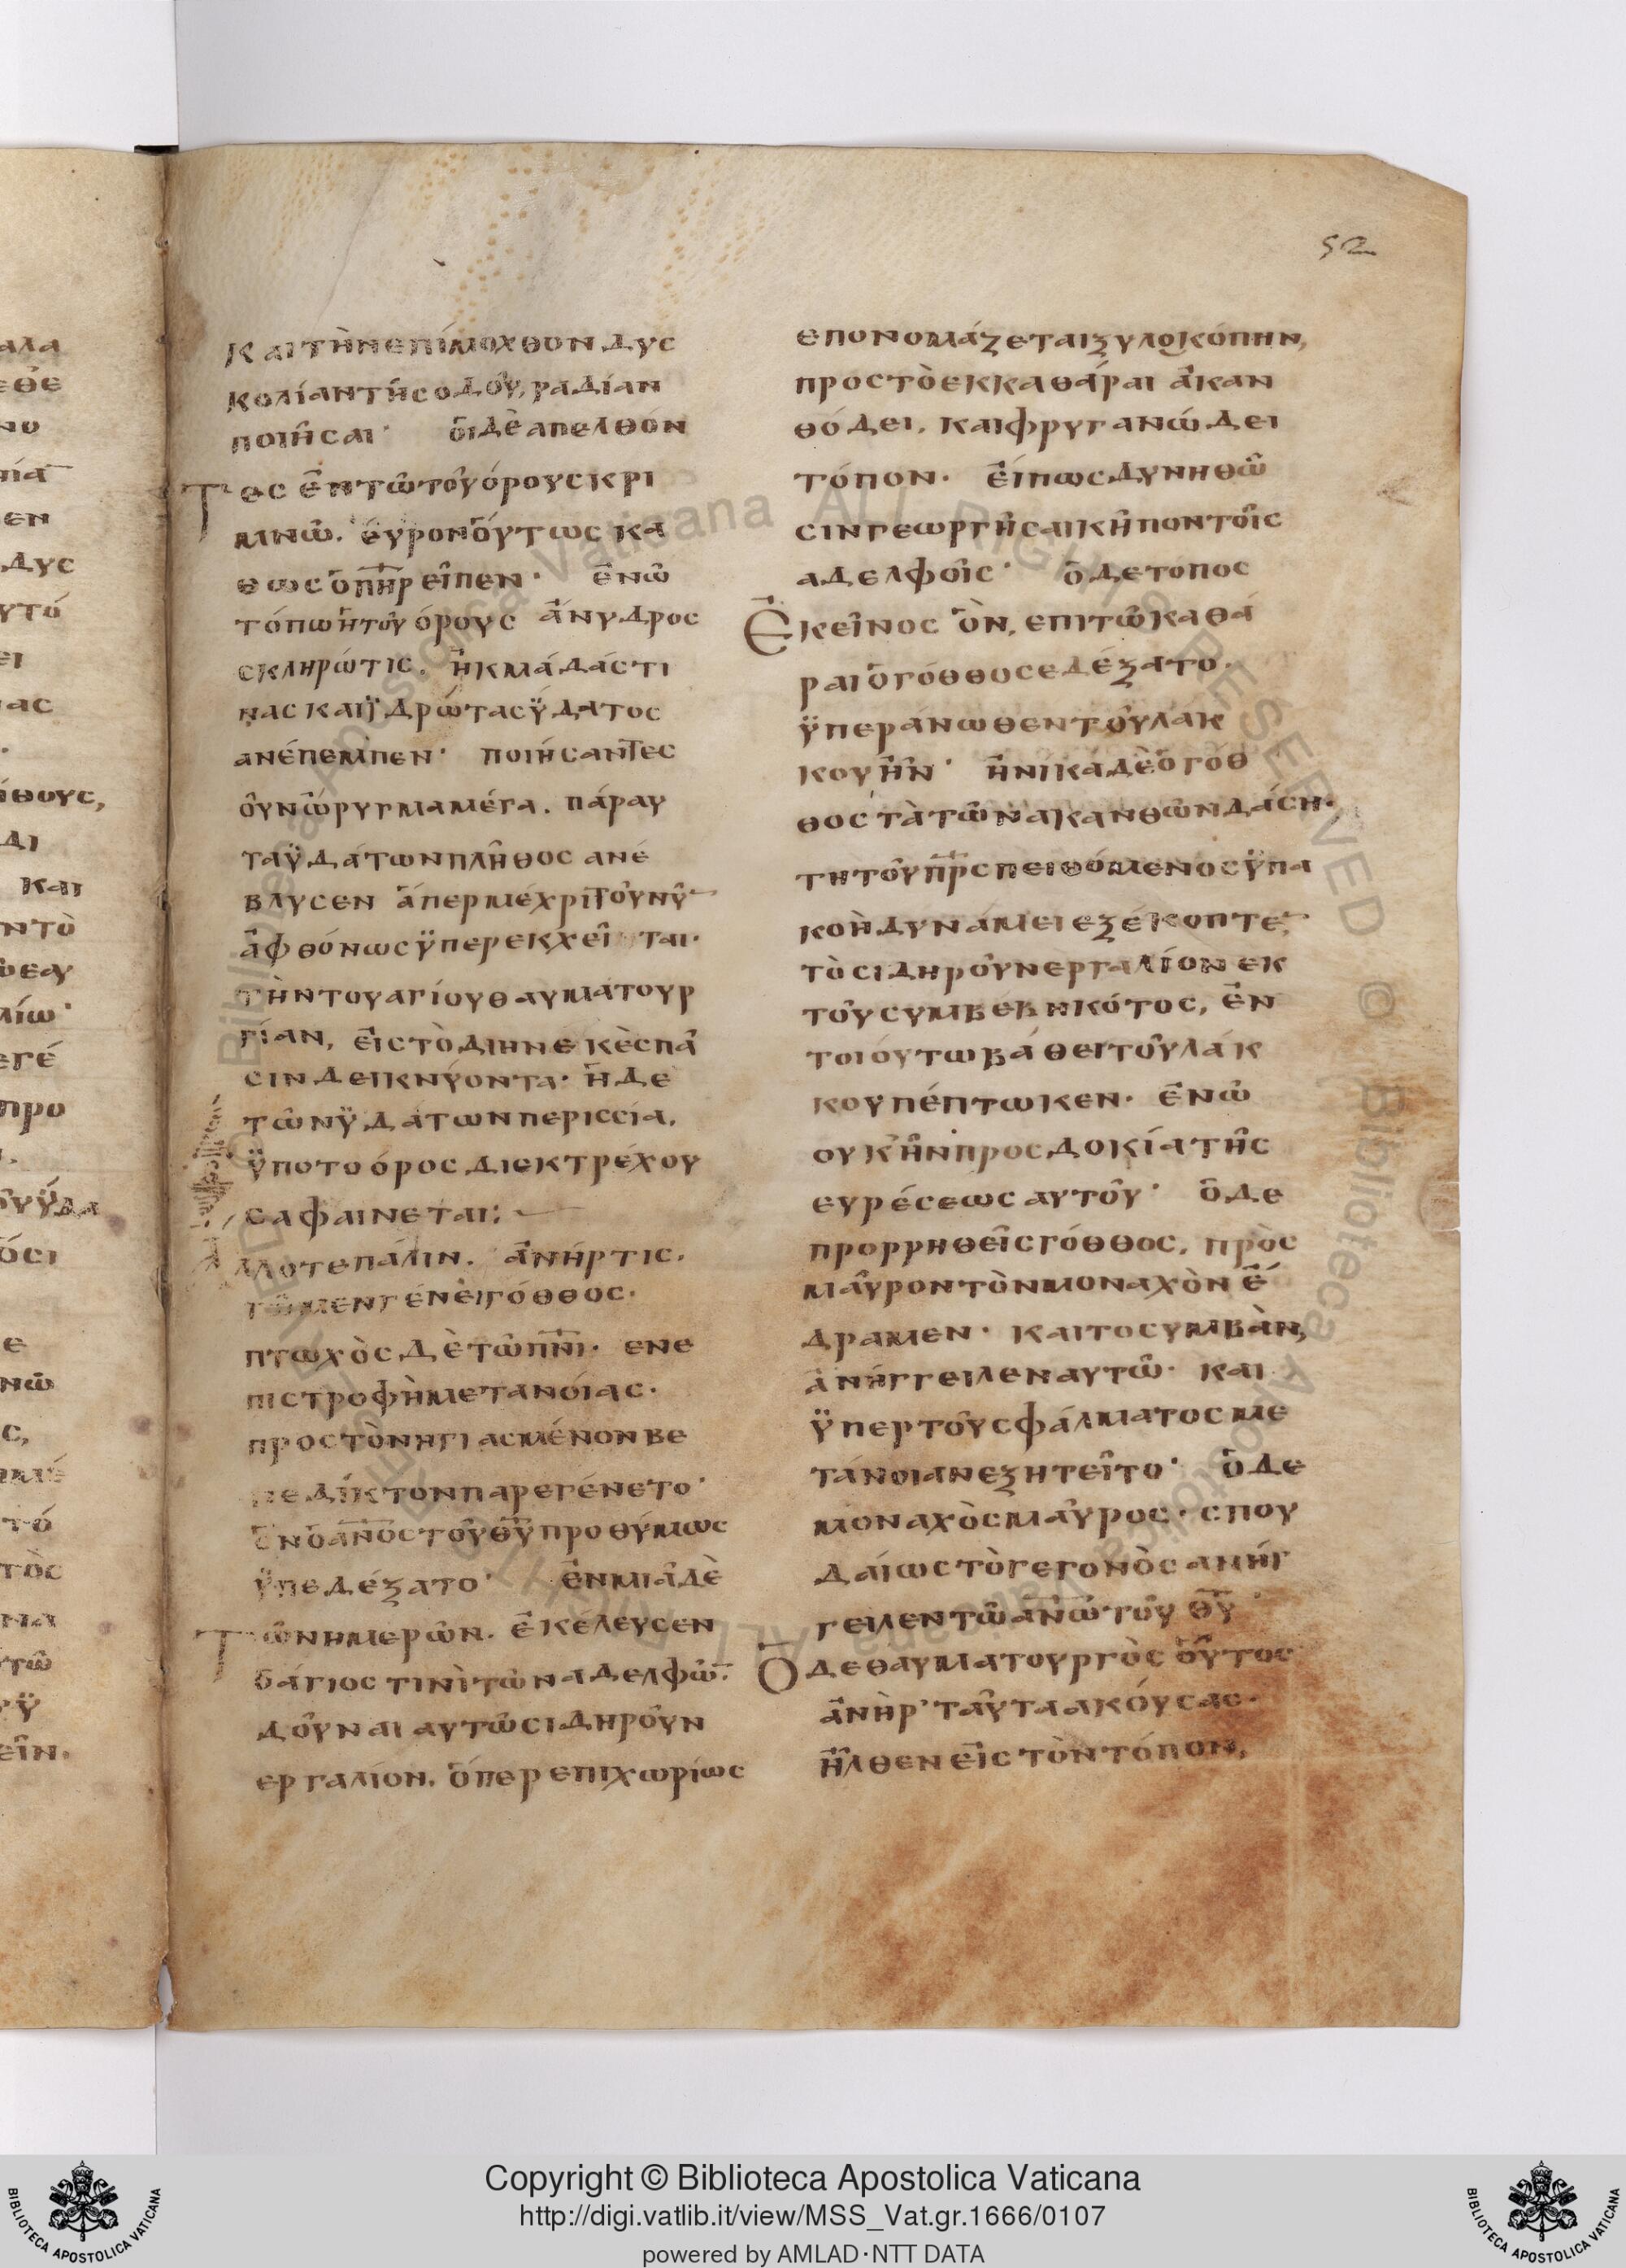 52
ΚΑΙΤῊΝΕΠΊΜΟΧΘΟΝΔΥΣ
ΚΟΛΊΑΝΤΗ͂ΣΟΔΟΥ͂, ΡΑΔΊΑΝ
ΠΟΙΗ͂ΣΑΙ· ὉΙΔῈΑΠΕΛΘΌΝ
ΤΕΣ ἘΝΤΩ͂ΤΟΥ͂ΌΡΟΥΣΚΡΙ
ΜΝΩ͂. ἙΥΡΟΝὉΥΤΩΣ ΚΑ
ΘΩΣ ὉΠΗΡ ΕἾΠΕΝ· ἘΝΩ͂
ΤΌΠΩ ΤΟΥ͂ ΌΡΟΥΣ ἌΝΥΔΡΟΣ
ΣΚΛΗΡΏΤΙΣ. ἨΚΜΆΔΑΣΤΙ
ΝΑΣ ΚΑΙΫΔΡΏΤΑΣΫΔΑΤΟΣ
ΑΝΈΠΕΜΠΕΝ· ΠΟΙΉΣΑΝΤΕΣ
ΟΥ͂ΝΏΡΥΓΜΑΜΈΓΑ. ΠΆΡΑΥ
ΤΑΫΔΆΤΩΝΠΛΗ͂ΘΟΣ ΑΝΈ
ΒΛΥΣΕΝ ἍΠΕΡΜΈΧΡΙΤΟΥ͂ΝΥ͂
ἈΦΘΌΝΩΣΫΠΕΡΕΚΧΕΙ͂ΤΑΙ·
ΤῊΝΤΟΥΑΓΊΟΥΘΑΥΜΑΤΟΥΡ
ΓΊΑΝ, ἘΙΣΤῸΔΙΗΝΕΚῈΣΠΑ͂
ΣΙΝΔΕΙΚΝΎΟΝΤΑ· ἩΔΕ
ΤΩ͂ΝΫΔΆΤΩΝΠΕΡΙΣΣΊΑ,
ΫΠΟΤΟΌΡΟΣΔΙΕΚΤΡΈΧΟΥ
ΣΑΦΑΙΝΕΤΑΙ:
ΛΛΟΤΕΠΆΛΙΝ. ἈΝΉΡΤΙΣ.
ΤΩ͂ΜΕΝΓΈΝΕΙΓΌΘΘΟΣ·
ΠΤΩΧῸΣΔῈΤΩ͂ΠΝΙ· ΕΝΕ
ΠΙΣΤΡΟΦῊΜΕΤΑΝΟΊΑΣ·
ΠΡΟΣΤῸΝΗΓΙΑΣΜΈΝΟΝΒΕ
ΝΕΔΙΚΤΟΝΠΑΡΕΓΈΝΕΤΟ·
ὋΝὉΑΝΟΣΤΟΥ͂ΘΥ͂ΠΡΟΘΎΜΩΣ
ΫΠΕΔΈΞΑΤΟ· ἘΝΜΙΑ͂ΔῈ
ΤΩ͂ΝΗΜΕΡΩ͂Ν. ἘΚΈΛΕΥΣΕΝ
ὉΆΓΙΟΣΤΙΝῚΤΩ͂ΝΑΔΕΛΦΩ͂.
ΔΟΥ͂ΝΑΙΑΥΤΩ͂ΣΙΔΗΡΟΥ͂Ν
ΕΡΓΑΛΊΟΝ. ὍΠΕΡΕΠΙΧΩΡΊΩΣ
ΕΠΟΝΟΜΆΖΕΤΑΙΞΥΛΟΚΌΠΗΝ,
ΠΡΟΣΤῸΕΚΚΑΘΆΡΑΙ ἈΚΑΝ
ΘΌΔΕΙ. ΚΑΙΦΡΥΓΑΝΏΔΕΙ
ΤΌΠΟΝ· ἘΊΠΩΣΔΥΝΗΘΩ͂
ΣΙΝΓΕΩΡΓΗ͂ΣΑΙΚΗ͂ΠΟΝΤΟΙ͂Σ
ΑΔΕΛΦΟΙ͂Σ· ὉΔΕΤΟΠΟΣ
ἘΚΕΙ͂ΝΟΣ ὋΝ, ΕΠΙΤΩ͂ΚΑΘΆ
ΡΑΙὉΓΌΘΘΟΣΕΔΈΞΑΤΟ.
ΫΠΕΡΆΝΩΘΕΝΤΟΥ͂ΛΑΚ
ΚΟΥἮΝ· ἩΝΊΚΑΔῈὉΓΌΘ
ΘΟΣΤᾺΤΩ͂ΝΑΚΑΝΘΩ͂ΝΔΆΣΗ·
ΤΗΤΟΥ͂ΠΡΣΠΕΙΘΌΜΕΝΟΣΫΠΑ
ΚΟῊΔΥΝΆΜΕΙΕΞΈΚΟΠΤΕ,
ΤῸΣΙΔΗΡΟΥ͂ΝΕΡΓΑΛΊΟΝΕΚ
ΤΟΥ͂ΣΥΜΒΕΒΗΚΌΤΟΣ, ἘΝ
ΤΟΙΌΥΤΩΒΆΘΕΙΤΟΥ͂ΛΆΚ
ΚΟΥΠΈΠΤΩΚΕΝ· ἘΝΩ͂
ΟΥΚἮΝΠΡΟΣΔΟΚΊΑΤΗ͂Σ
ΕΥΡΈΣΕΩΣΑΥΤΟΥ͂· ὉΔΕ
ΠΡΟΡΡΗΘΕΙ͂ΣΓΌΘΘΟΣ, ΠΡῸΣ
ΜΑΥ͂ΡΟΝΤῸΝΜΟΝΑΧῸΝἜ
ΔΡΑΜΕΝ· ΚΑΙΤΟΣΥΜΒᾺΝ,
ἈΝΉΓΓΕΙΛΕΝΑΥΤΩ͂· ΚΑΙ
ΫΠΕΡΤΟΥ͂ΣΦΆΛΜΑΤΟΣΜΕ
ΤΆΝΟΙΑΝΕΞΗΤΕΙ͂ΤΟ· ὉΔΕ
ΜΟΝΑΧῸΣΜΑΥ͂ΡΟΣ· ΣΠΟΥ
ΔΑΊΩΣΤῸΓΕΓΟΝῸΣΑΝΉΓ
ΓΕΙΛΕΝΤΩ͂ΑΝΩ͂ΤΟΥ͂ ΘΥ͂·
ὉΔΕΘΑΥΜΑΤΟΥΡΓῸΣ ΟὟΤΟΣ
ἈΝῊΡ· ΤΑΥ͂ΤΑΑΚΟΎΣΑΣ·
ἮΛΘΕΝΕἸΣΤῸΝΤΌΠΟΝ,
Copyright © Biblioteca Apostolica Vaticana
http://digi.vatlib.it/view/MSS_Vat.gr.1666/0107
powered by AMLAD·NTT DATA
BIBLIOTECA APOSTOLICA VATICANA
BIBLIOTECA APOSTOLICA VATICANA